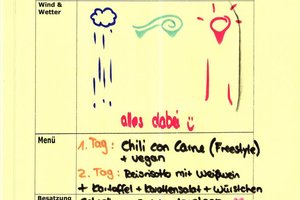 Wind &
Wetter
alles dabei
Menü
1. Tag: Chili con Carne (Freestyle)
+ vegan
2. Tag: Reisrisotto mit Weißwein
+ Kartoffel + Karottensalat + Würstchen
Besatzung